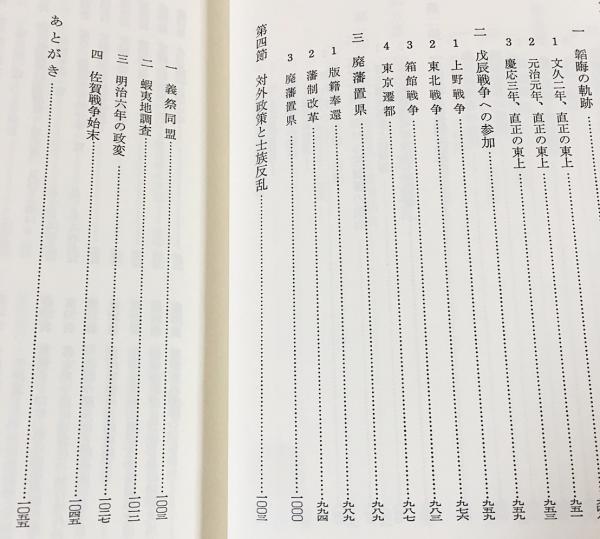 一 韜晦の軌跡
1 文久二年、直正の東上……九四八
2 元治元年、直正の東上……九五一
3 慶応三年、直正の東上……九五三
二 戊辰戦争への参加……九五九
1 上野戦争……九五九
2 東北戦争……九七六
3 箱館戦争……九八三
4 東京遷都……九八七
三 廃藩置県……九八九
1 版籍奉還……九八九
2 藩制改革……九九四
3 廃藩置県……一〇〇〇
第四節 対外政策と士族反乱……一〇〇三
一 義祭同盟……一〇〇三
二 蝦夷地調査……一〇一二
三 明治六年の政変……一〇二七
四 佐賀戦争始末……一〇四五
あとがき……一〇五五